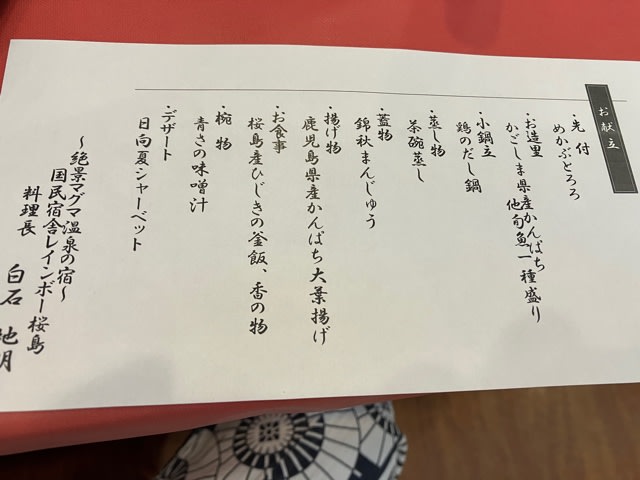 お献立
・先付
めかぶとろろ
・お造里
かごしま県産かんぱち
他旬魚一種盛り
・小鍋立
鶏のだし鍋
・蒸し物
茶碗蒸し
・蓋物
錦秋まんじゅう
・揚げ物
鹿児島県産かんぱち大葉揚げ
・お食事
桜島産ひじきの釜飯、香の物
・椀物
青さの味噌汁
・デザート
日向夏シャーベット
～絶景マグマ温泉の宿～
国民宿舎レインボー桜島
料理長 白石